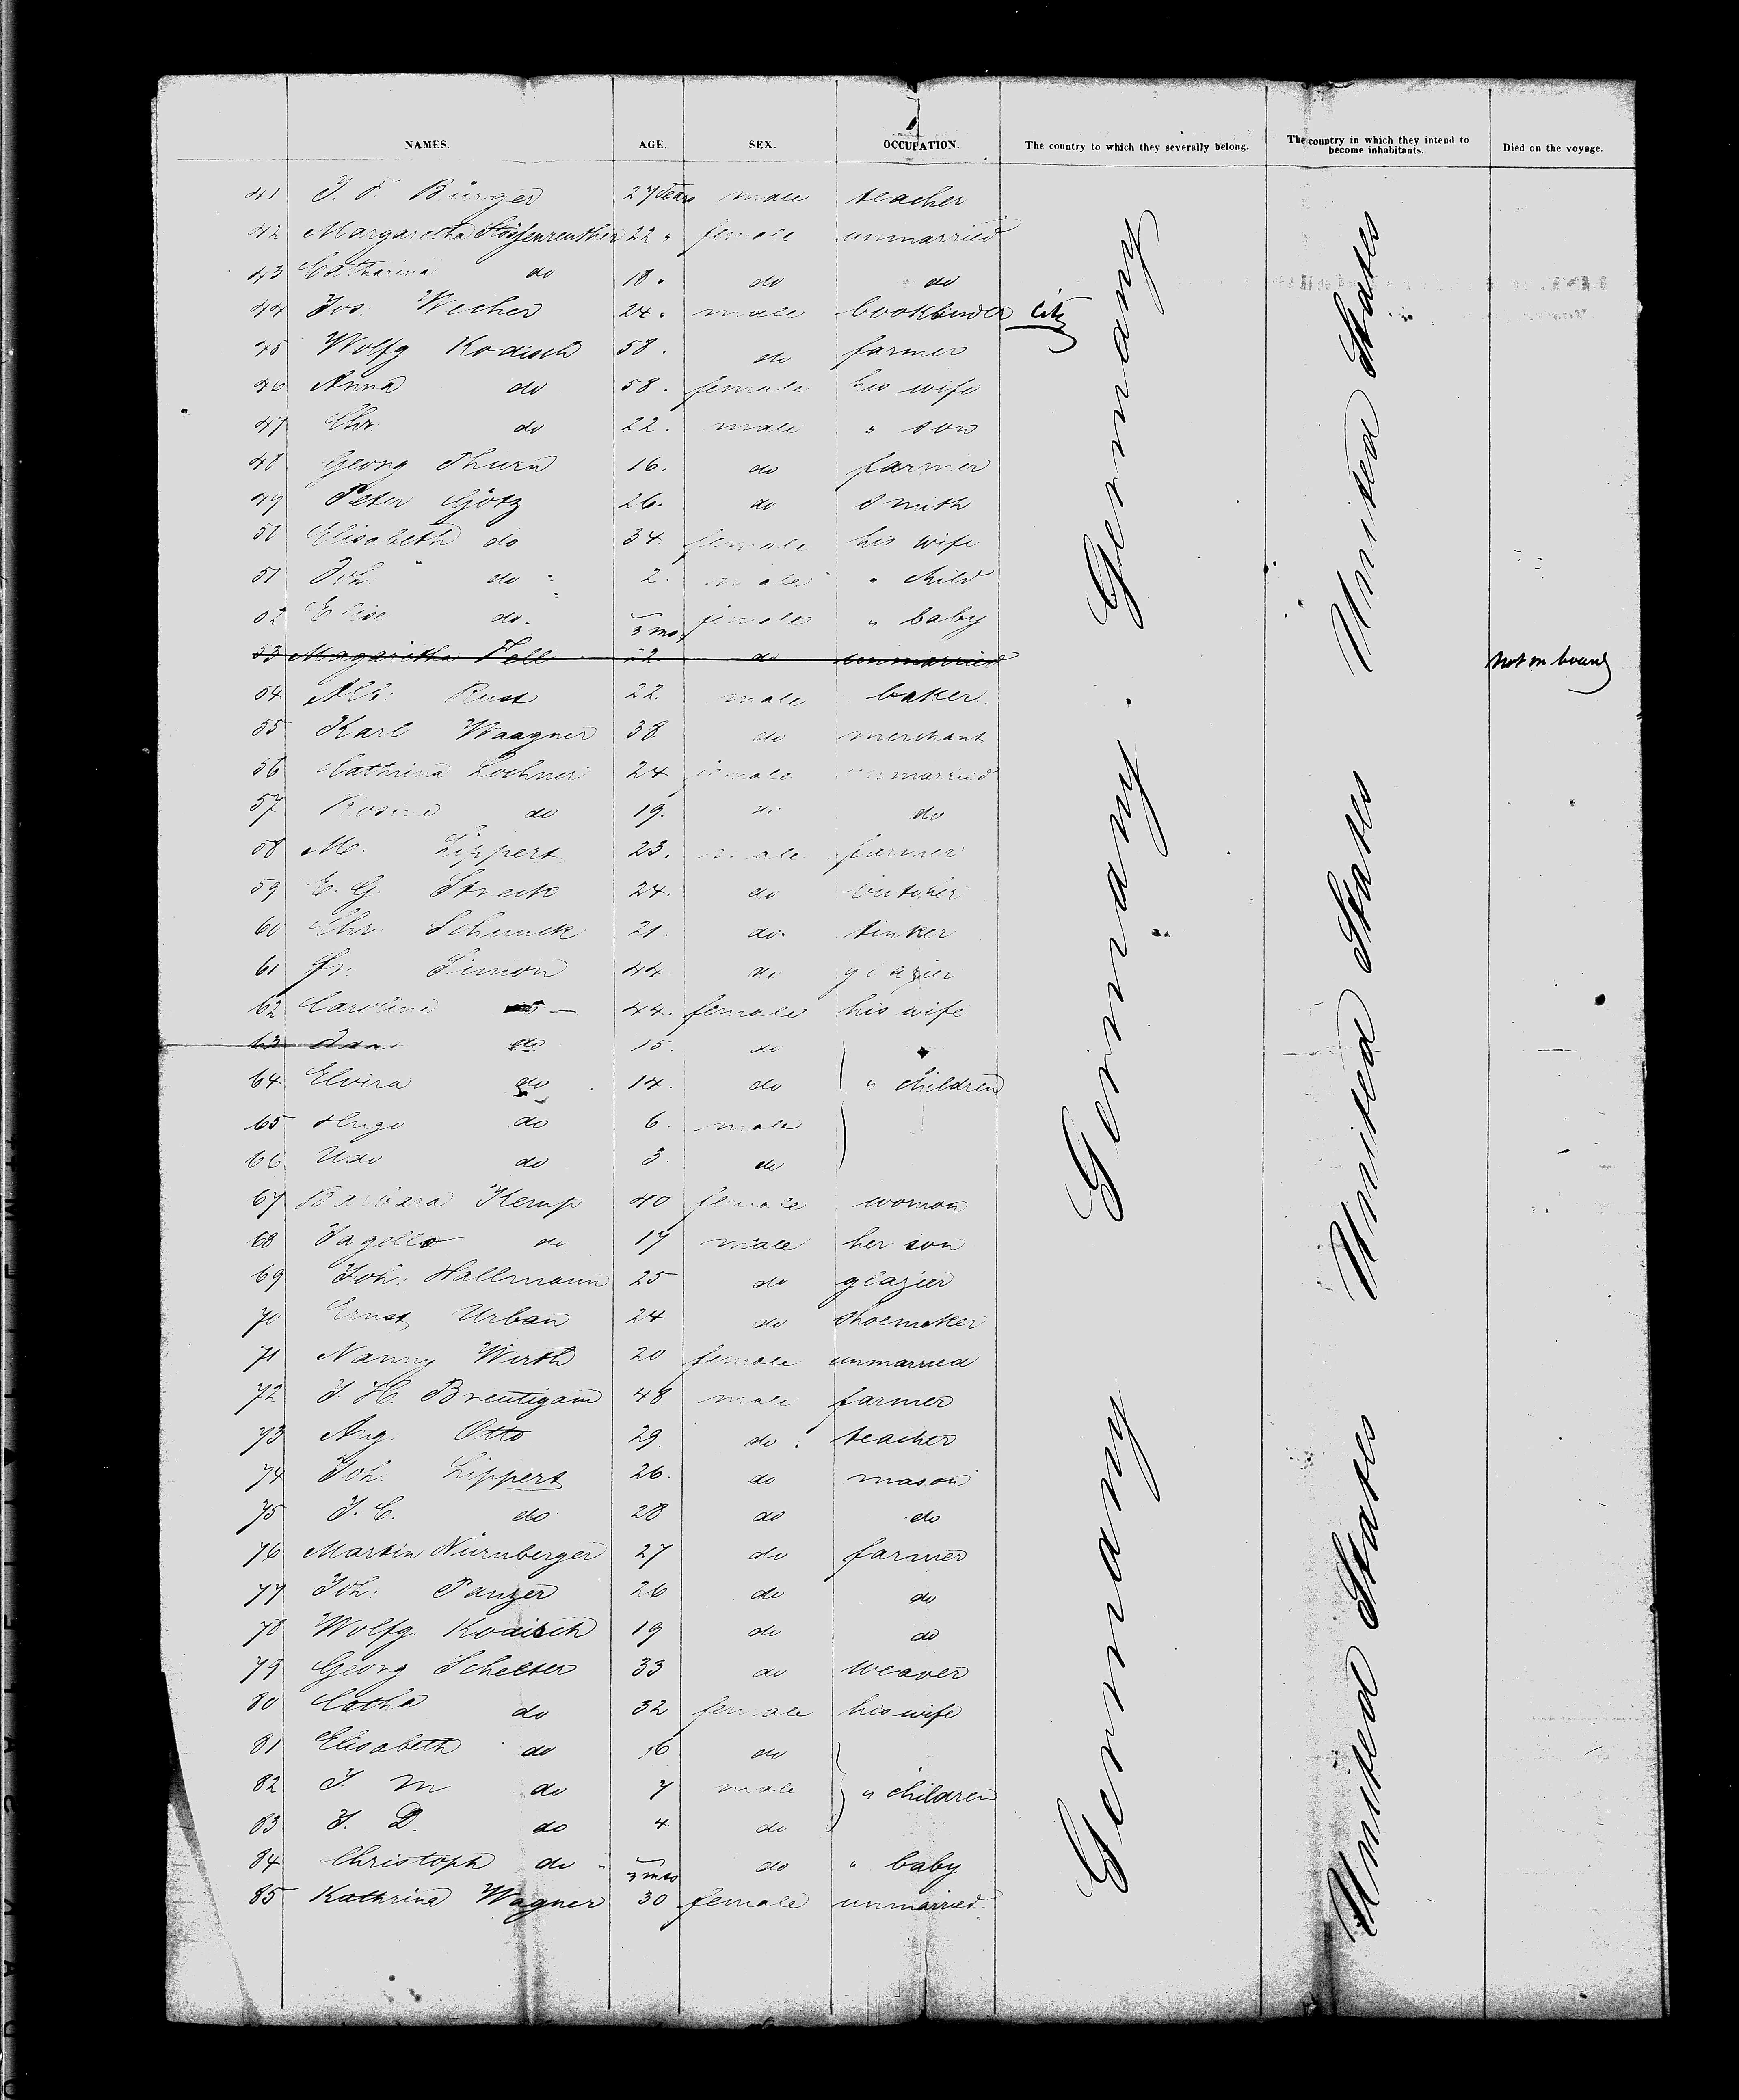 NAMES. AGE. SEX. OCCUPATION. The country to which they severally belong. The country in which they intend to become inhabitants. Died on the voyage.
41 J. F. Bürger 27 Years male teacher
42 Margaretha 22 " female unmarried
43 Catharina do 18 " do do
44 Jos. Wecher 24 " male bookbinder City
45 Wolfg Kodisch 58 . do farmer
46 Anna do 58 . female his wife
47 Chr. do 22 . male " son
48 Georg Thurn 16 . do farmer
49 Peter Götz 26 . do smith
50 Elisabeth do 34 . female his wife
51 Joh. do 2 . male " child
52 Elise do 3 mos female " baby
53 Magaretha Fell 22 do unmarried not on board
54 Alb. Rust 22 . male baker
55 Karl Waagner 38 do merchant
56 Cathrina Lochner 24 female unmarried
57 Rosina do 19 . do do
58 M. Lippert 23 . male farmer
59 E. G. Streck 24 . do butcher
60 Chr Schunck 21 . do tinker
61 Fr. Simon 44 do glazier
62 Caroline do — 44 . female his wife
63 do 15 . do
64 Elvira do 14 . do " children
65 Hugo do 6 . male
66 Udo do 3 do
67 Barbara Kemp 40 female woman
68 do 17 male her son
69 Joh. Hallmann 25 do glazier
70 Ernst Urban 24 do shoemaker
71 Nanny Wirth 20 female unmarried
72 J. H. Breutigam 48 male farmer
73 Aug. Otto 29 . do teacher
74 Joh. Lippert 26 . do mason
75 J. C. do 28 do do
76 Martin Nürnberger 27 do farmer
77 Joh. Panzer 26 do do
78 Wolfg. Kodisch 19 do do
79 Georg Schelter 33 do weaver
80 Catha do 32 female his wife
81 Elisabeth do do
82 J. M do 7 male " children
83 J. D. do 4 do
84 Christoph do 3 mos do " baby
85 Kathrina Wagner 30 female unmarried
Germany Germany . Germany
United States United States United States